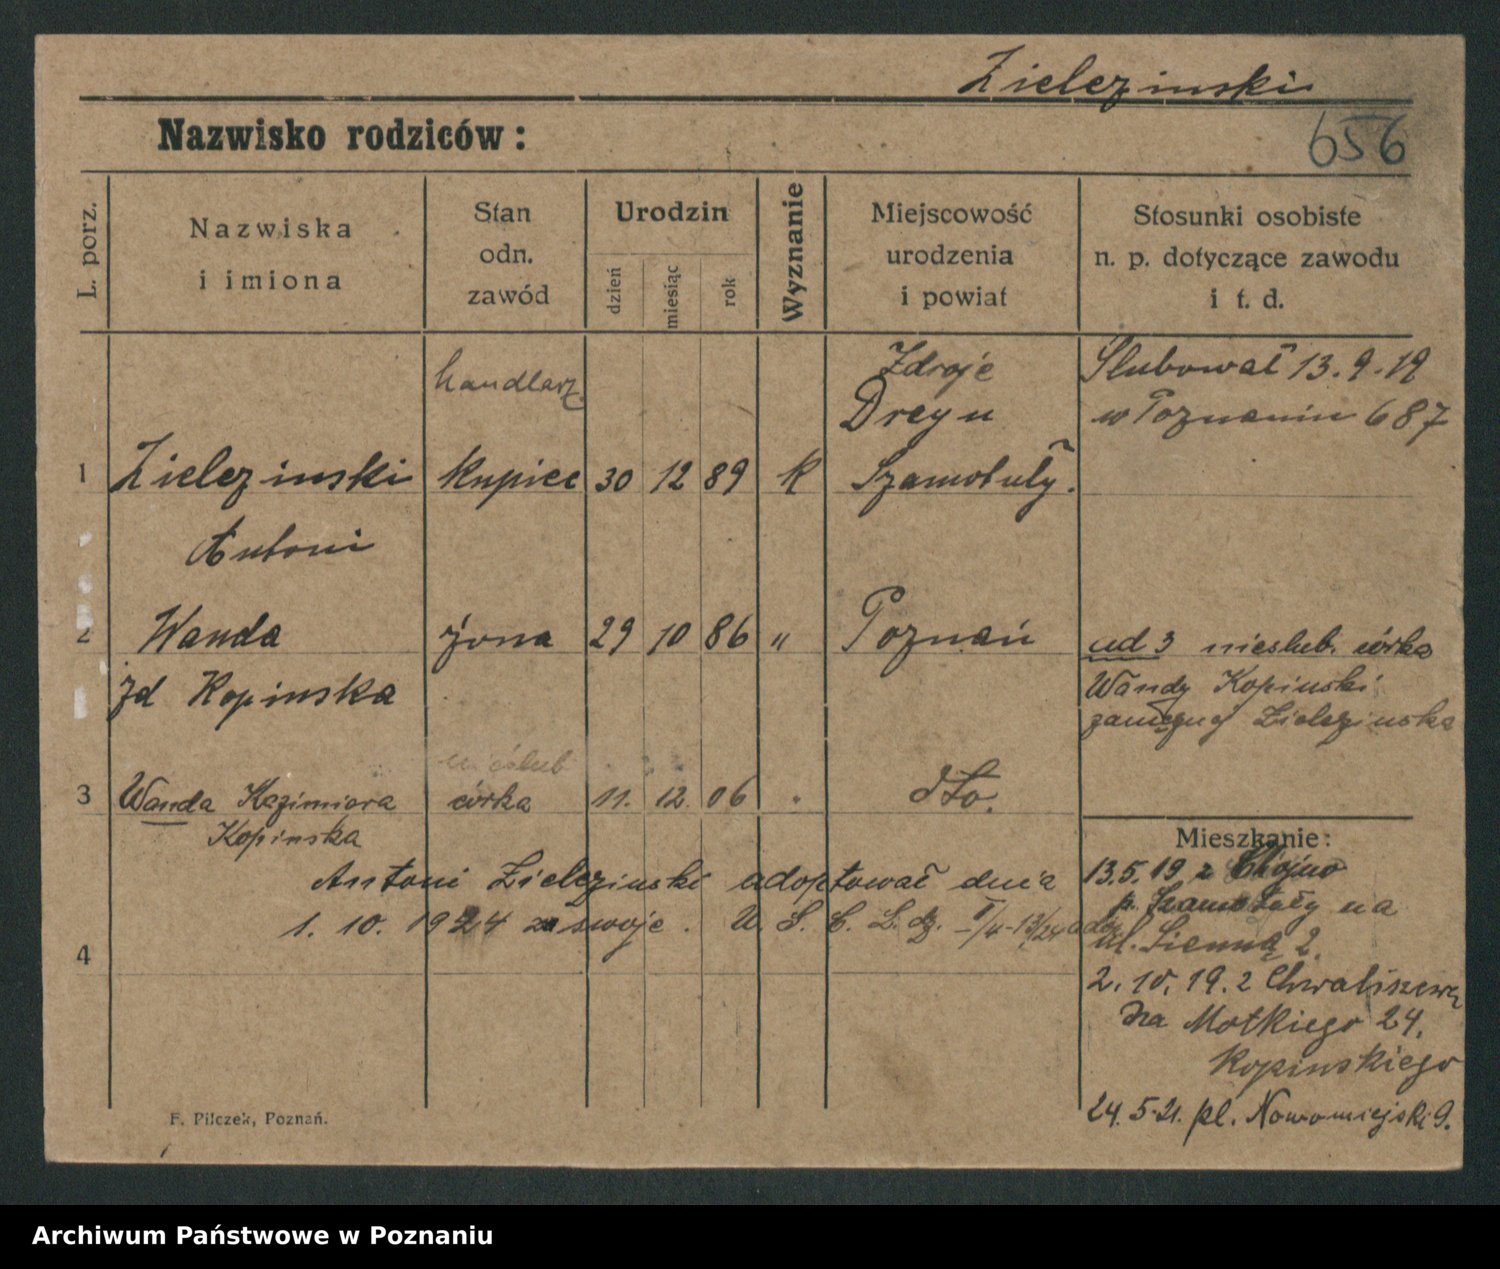 Zielezinski
Nazwisko rodziców:
656
L. porz.
Nazwiska
i imiona
Stan
odn.
zawód
Urodzin
dzień
miesiąc
rok
Wyznanie
Miejscowość
urodzenia
i powiat
Stosunki osobiste
n. p. dotyczące zawodu
i t. d.
handlarz
Zdroje
Ślubował 13.9.19
w Poznaniu 687
1 Zielezinski kupiec 30 12 89 k Szamotuły.
Antoni
2 Wanda żona 29 10 86 " Poznań
żd Kopinska
ad 3 nieślub. córka
Wandy Kopinski
zamężnej Zielezinska
nieślub
3 Wanda Kazimiera córka 11. 12. 06 dto.
Kopinska
Antoni Zielezinski adoptował dnia
1. 10. 1924 za swoje. U. S. C. L. dz.
4
Mieszkanie:
13.5.19 z Chojno
p. Szamotuły na
ul. Sienna 2.
2. 10. 19. z Chwaliszewa
na Motkiego 24.
Kopinskiego
24. 5. 21. pl. Nowomiejski 9.
F. Pilczek, Poznań.
Archiwum Państwowe w Poznaniu